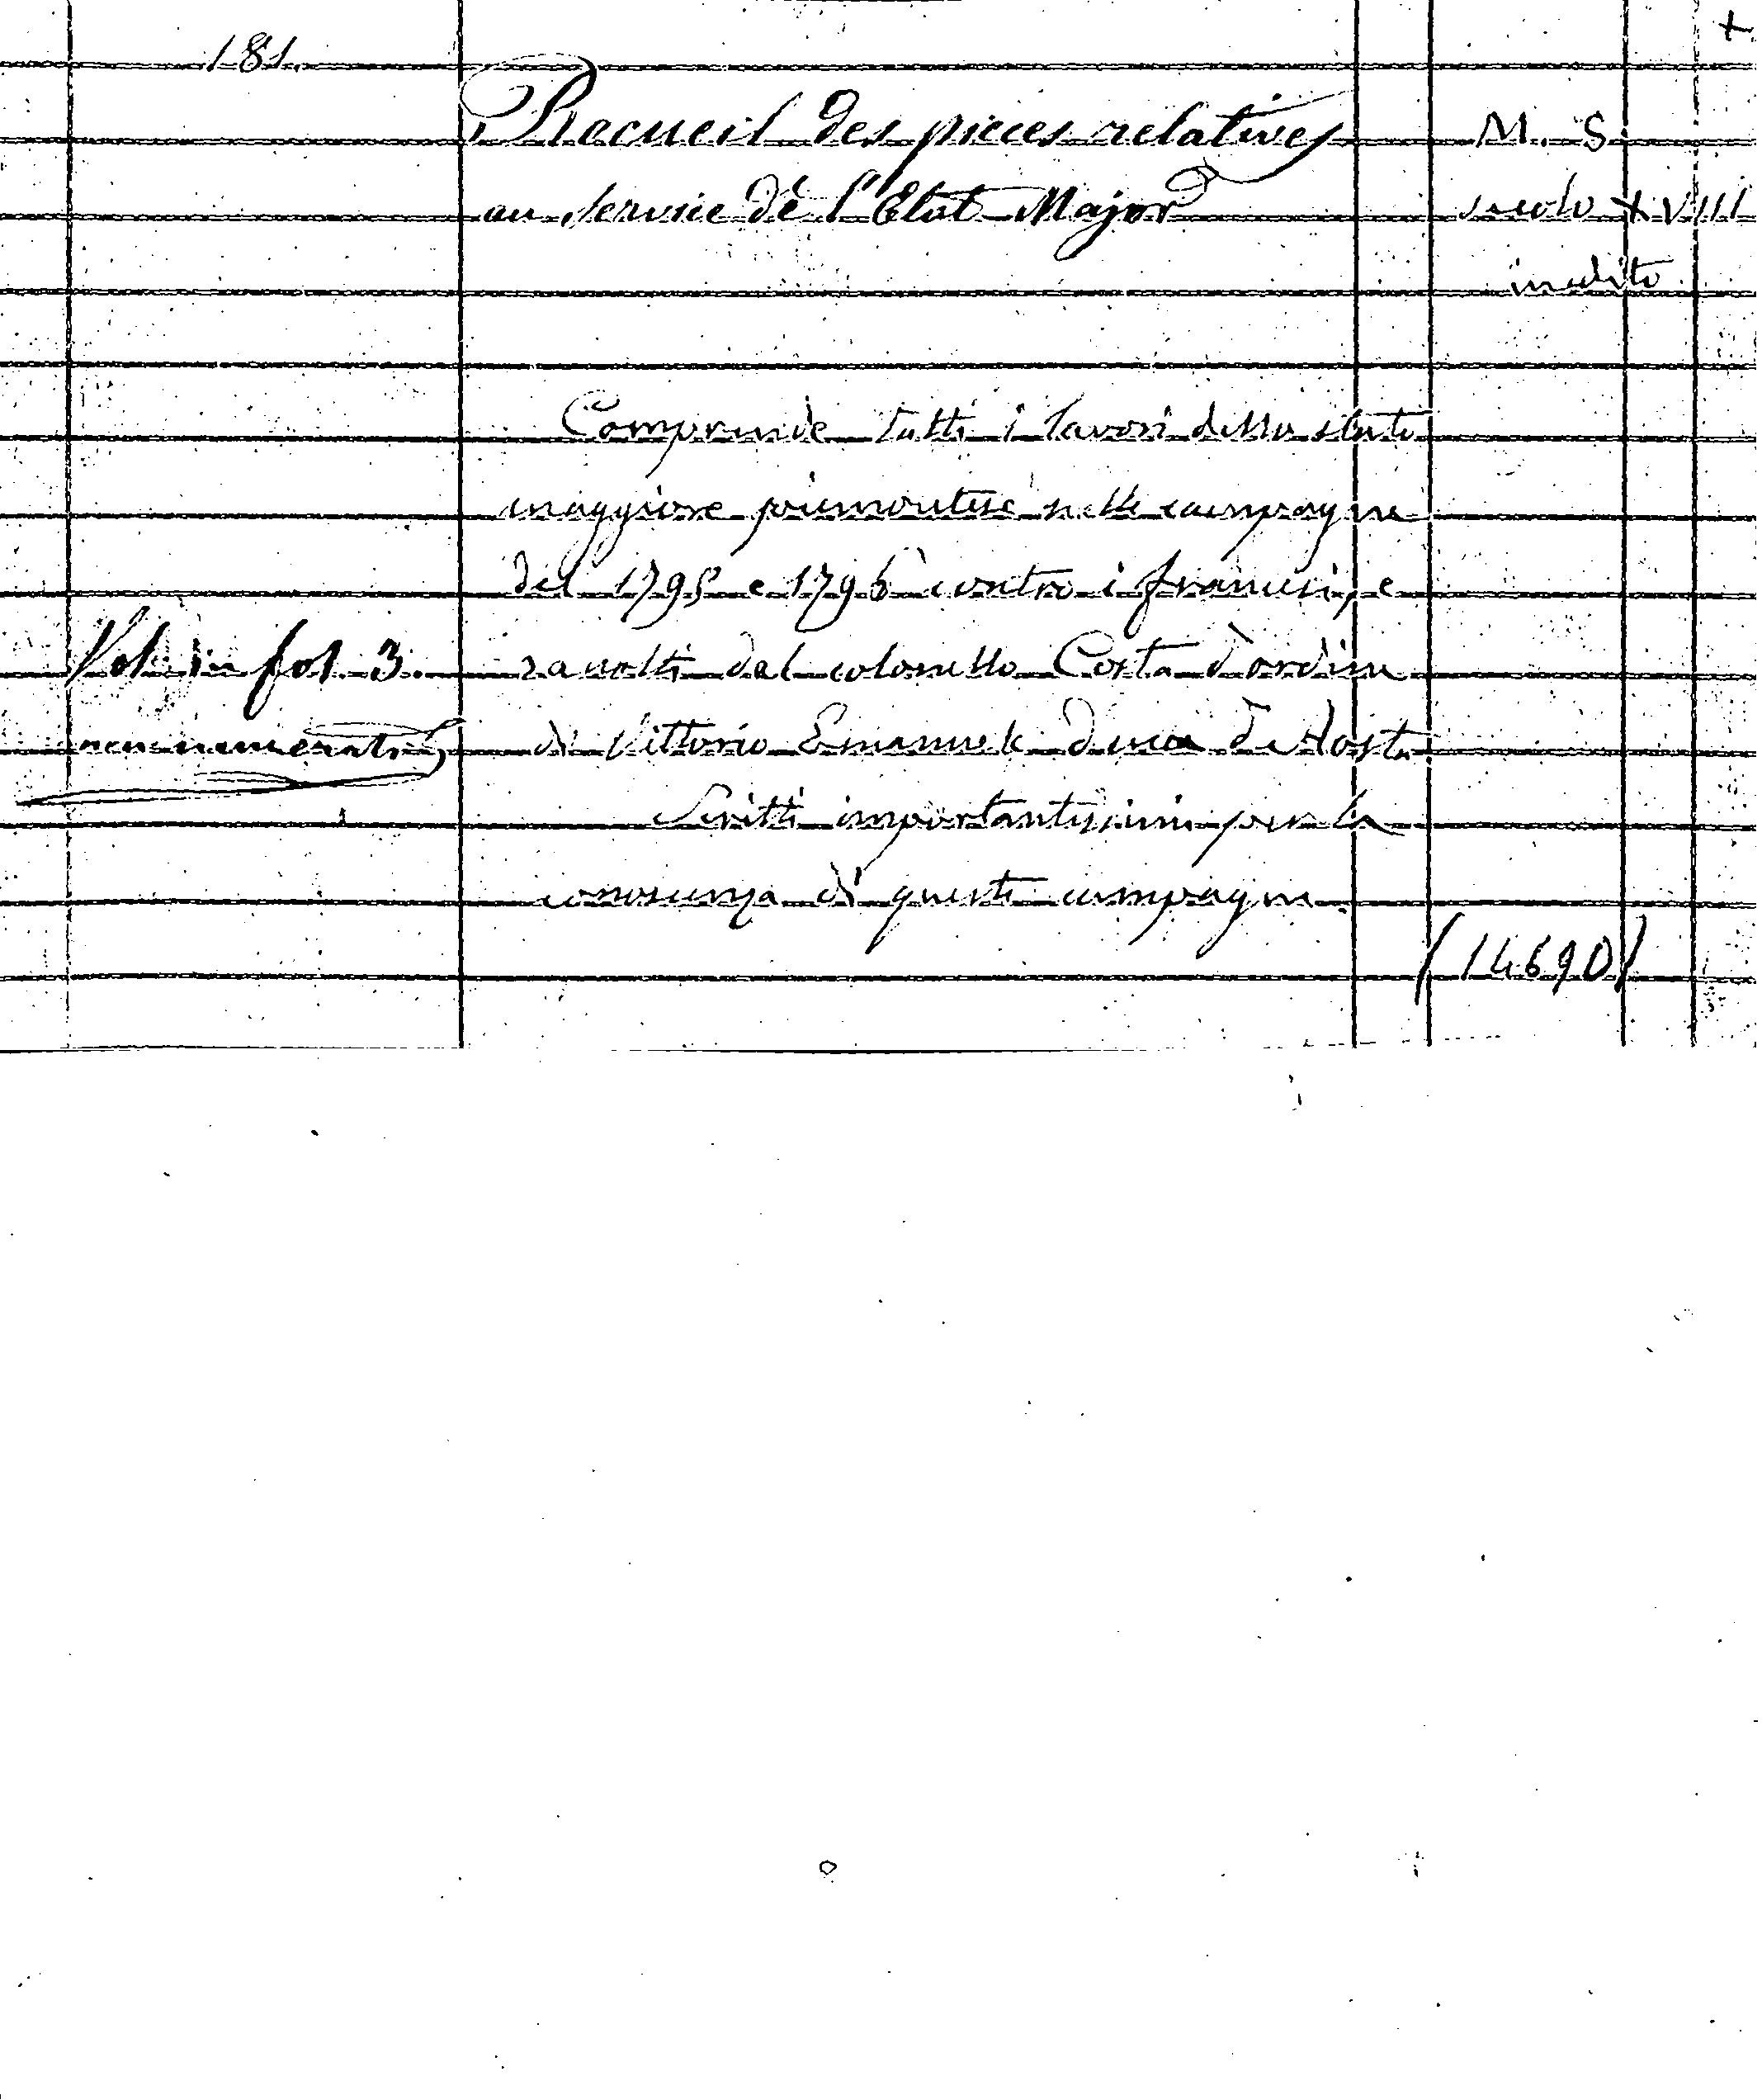 181.
Recueil des pieces relatives
au service de l'Etat Major
M. S.
secolo XVIII
inedito
Comprende tutti i lavori dello stato
maggiore piemontese nelle campagne
del 1795 e 1796 contro i francesi, e
raccolti dal colonnello Costa d'ordine
di Vittorio Emanuele duca di Aosta.
Scritti importantissimi per la
conoscenza di queste campagne.
Vol. in fol. 3.
non numerati
(14690)